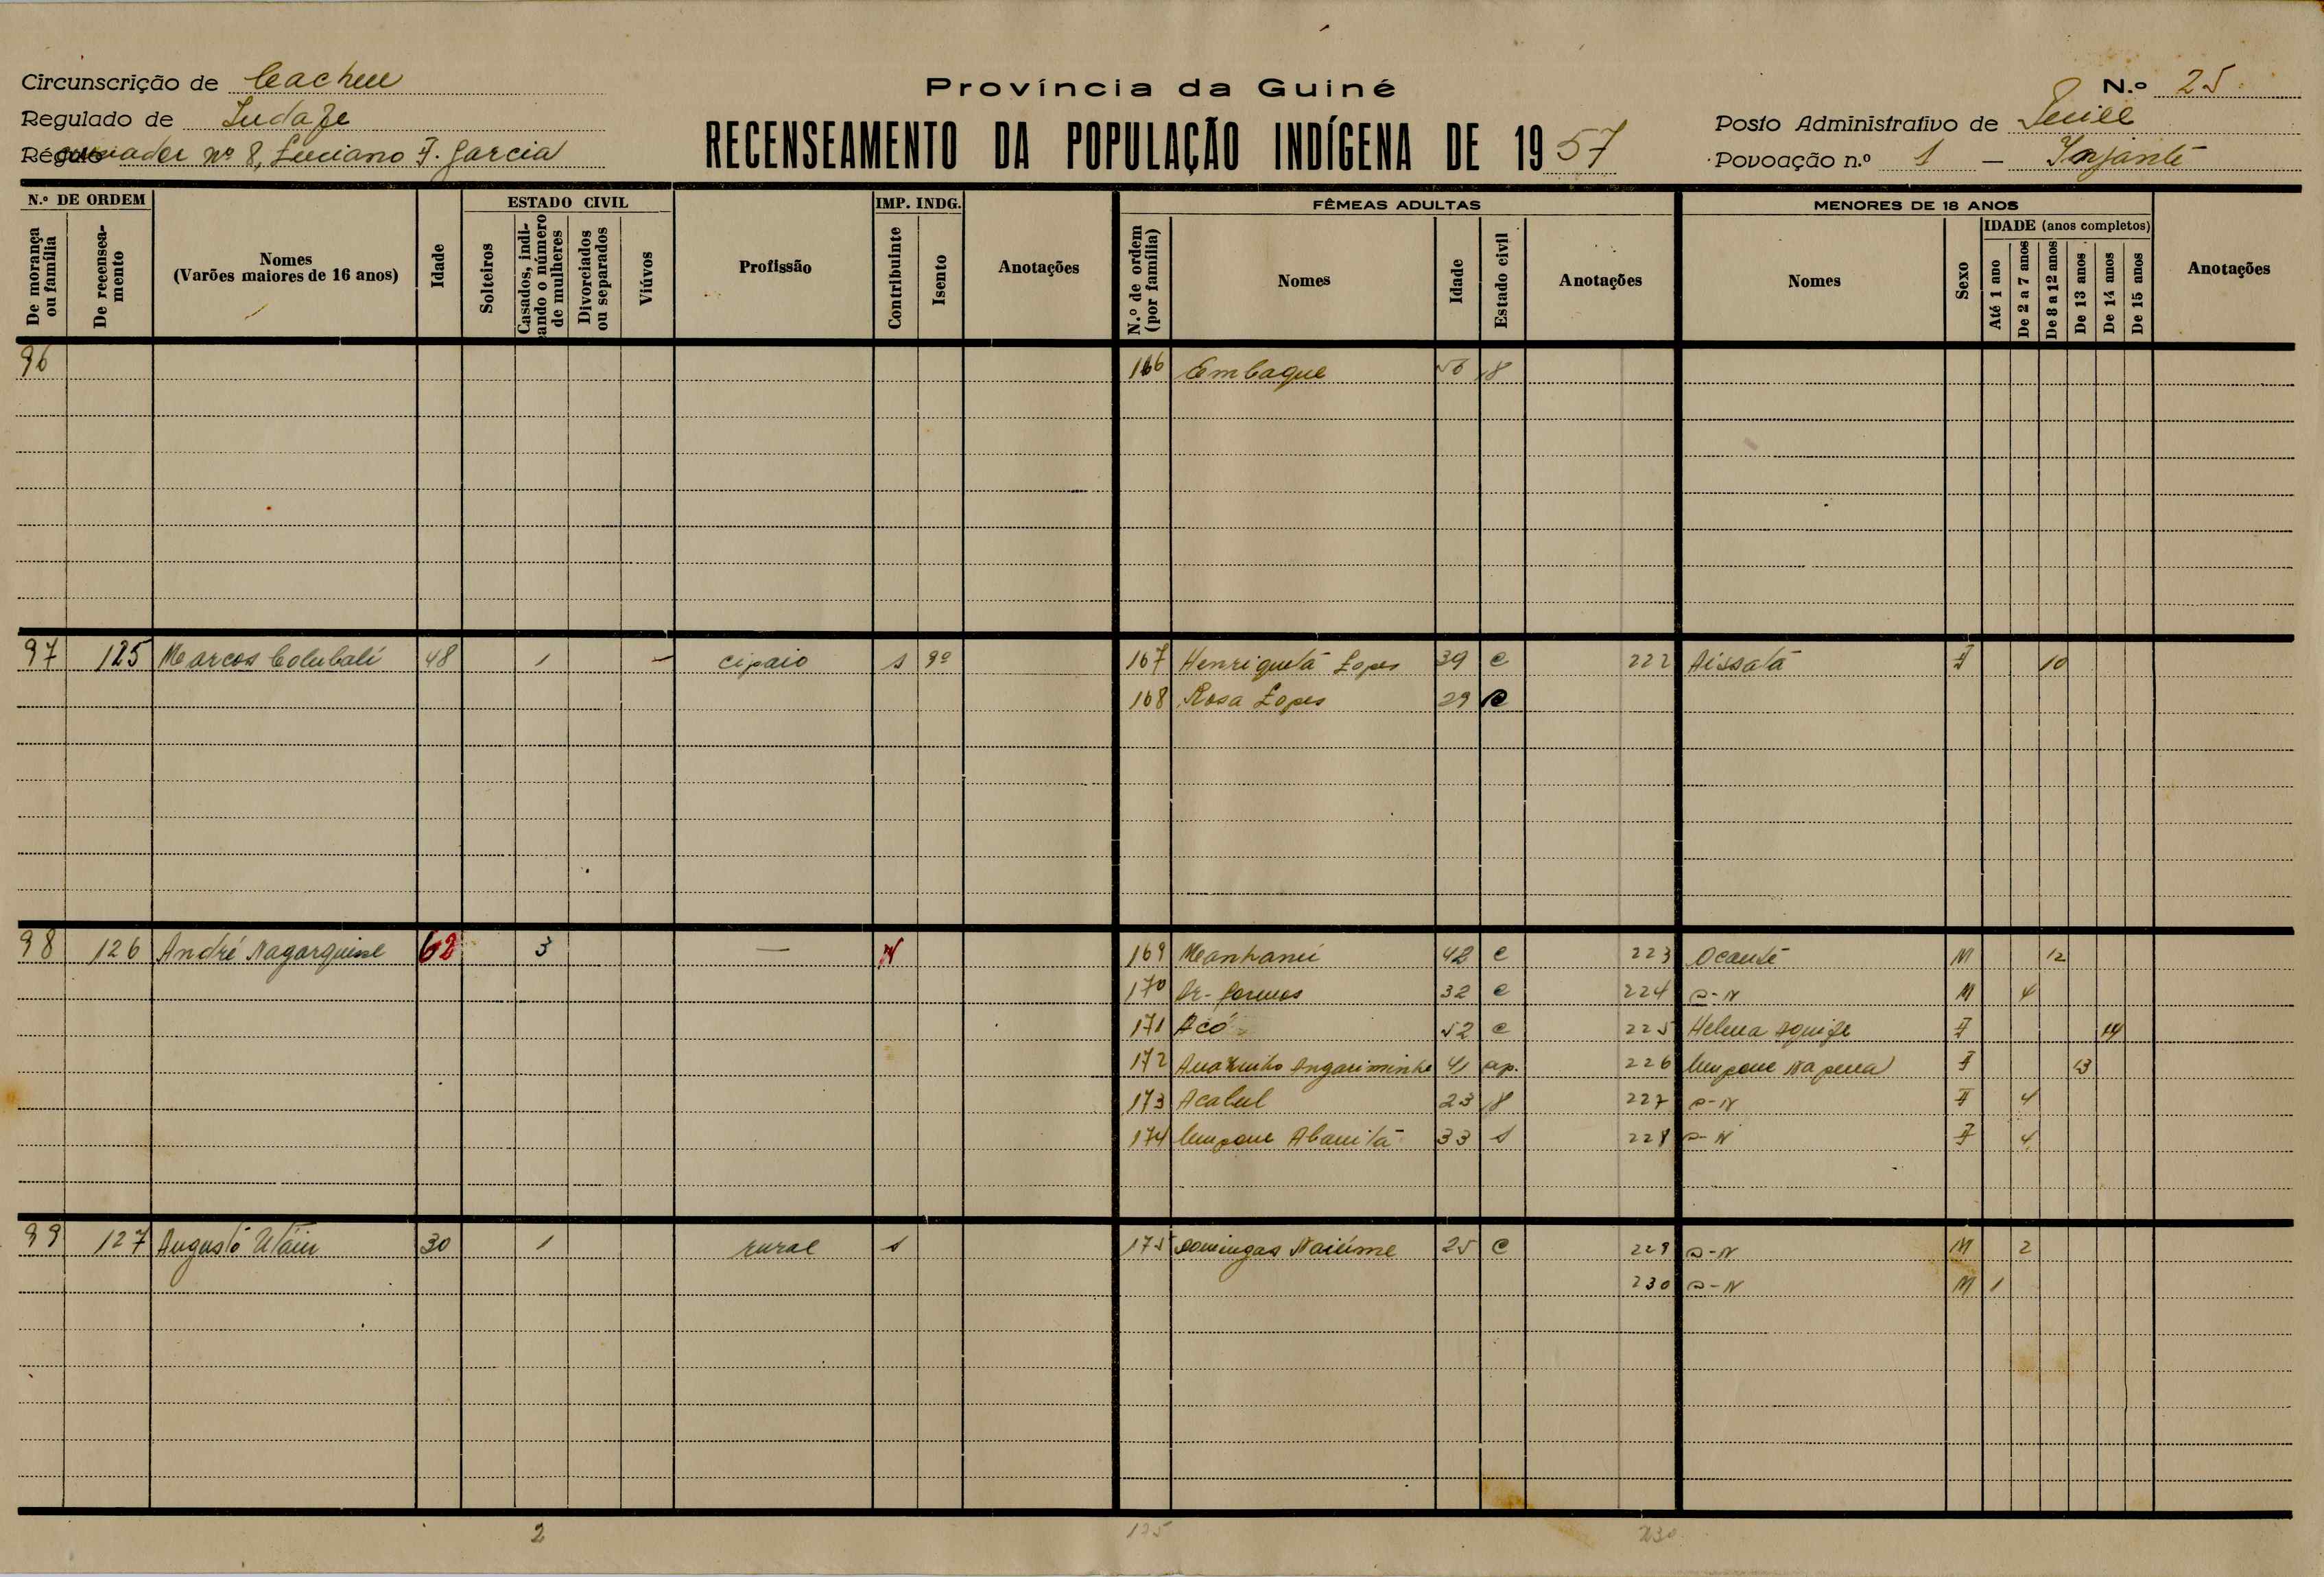 Circunscrição de Cacheu
Província da Guiné
N.º 25
Regulado de
RECENSEAMENTO DA POPULAÇÃO INDÍGENA DE 1957
Posto Administrativo de
Régulo nº 8, Luciano F. Garcia
Povoação n.º 1 –
N.º DE ORDEM
De morança ou família
De recenseamento
Nomes
(Varões maiores de 16 anos)
Idade
ESTADO CIVIL
Solteiros
Casados, indicando o número de mulheres
Divorciados ou separados
Viúvos
Profissão
IMP. INDG.
Contribuinte
Isento
Anotações
FÊMEAS ADULTAS
N.º de ordem (por família)
Nomes
Idade
Estado civil
Anotações
MENORES DE 18 ANOS
Nomes
Sexo
IDADE (anos completos)
Até 1 ano
De 2 a 7 anos
De 8 a 12 anos
De 13 anos
De 14 anos
De 15 anos
Anotações
96 166 Embaque
97 125 Marcos Colubali 48 1 cipaio s 9º 167 Henriqueta Lopes 39 c 222 Aissatá F 10
168 Rosa Lopes 29 c
98 126 André 62 3 — N 169 42 c 223 Ocanté M 12
170 32 c 224 S-N M 4
171 Acó 52 c 225 Helena F 14
172 41 226 F 13
173 Acabul 23 227 S-N F 4
174 33 s 228 S-N F 4
99 127 Augusto 30 1 rural s 175 Domingas 25 c 229 S-N M 2
230 S-N M 1
2 175 230